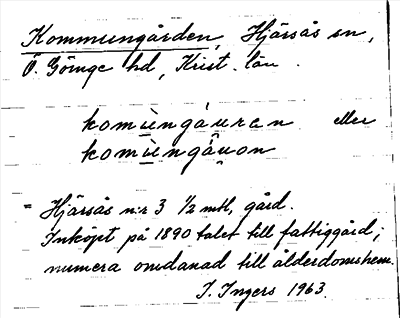 Kommungården, Hjärsås sn,
Ö. Göinge hd, Krist. län.
komùngáuran eller
komùngā̂uon
Hjärsås n:r 3 1/2 mtl, gård.
Inköpt på 1890 talet till fattiggård;
numera omdanad till ålderdomshem.
I. Ingers 1963.